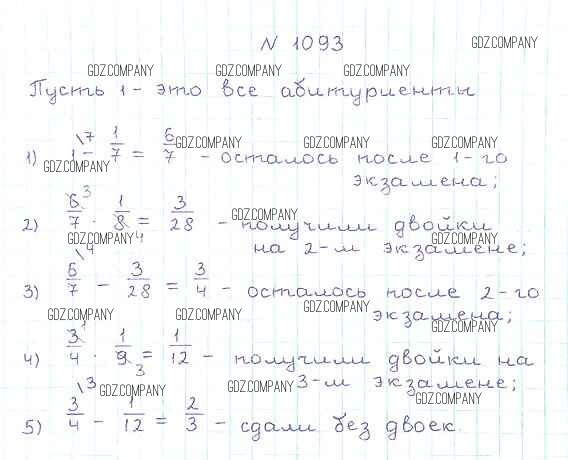 N 1093
GDZ.COMPANY
GDZ.COMPANY GDZ.COMPANY GDZ.COMPANY
Пусть 1 - это все абитуриенты
1) 1\7 - 1/7 = 6/7 - осталось после 1-го
GDZ.COMPANY GDZ.COMPANY GDZ.COMPANY
GDZ.COMPANY
экзамена;
2) 6/7 3 · 1/8 4 = 3/28 - получили двойки
GDZ.COMPANY
GDZ.COMPANY GDZ.COMPANY
на 2-м экзамене;
3) 6/7 \4 - 3/28 = 3/4 - осталось после 2-го
GDZ.COMPANY
экзамена;
GDZ.COMPANY GDZ.COMPANY GDZ.COMPANY
4) 3/4 1 · 1/9 3 = 1/12 - получили двойки на
3-м экзамене;
GDZ.COMPANY GDZ.COMPANY GDZ.COMPANY
5) 3/4 \3 - 1/12 = 2/3 - сдали без двоек.